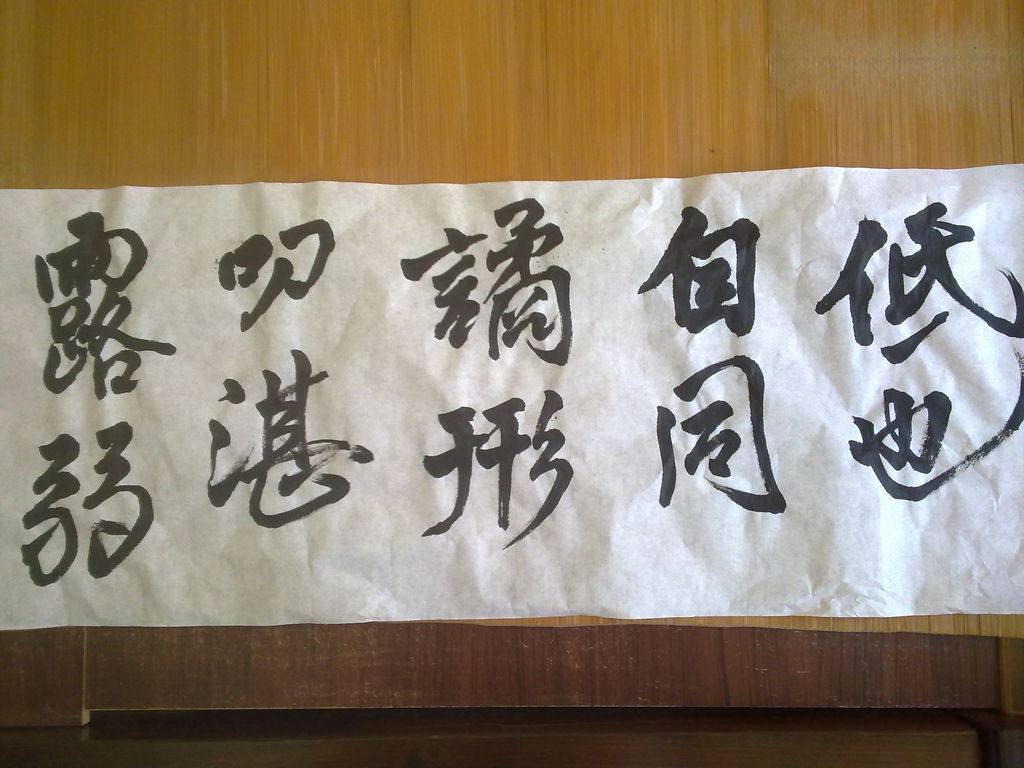 低也
自同
譎形
叨湛
露弱